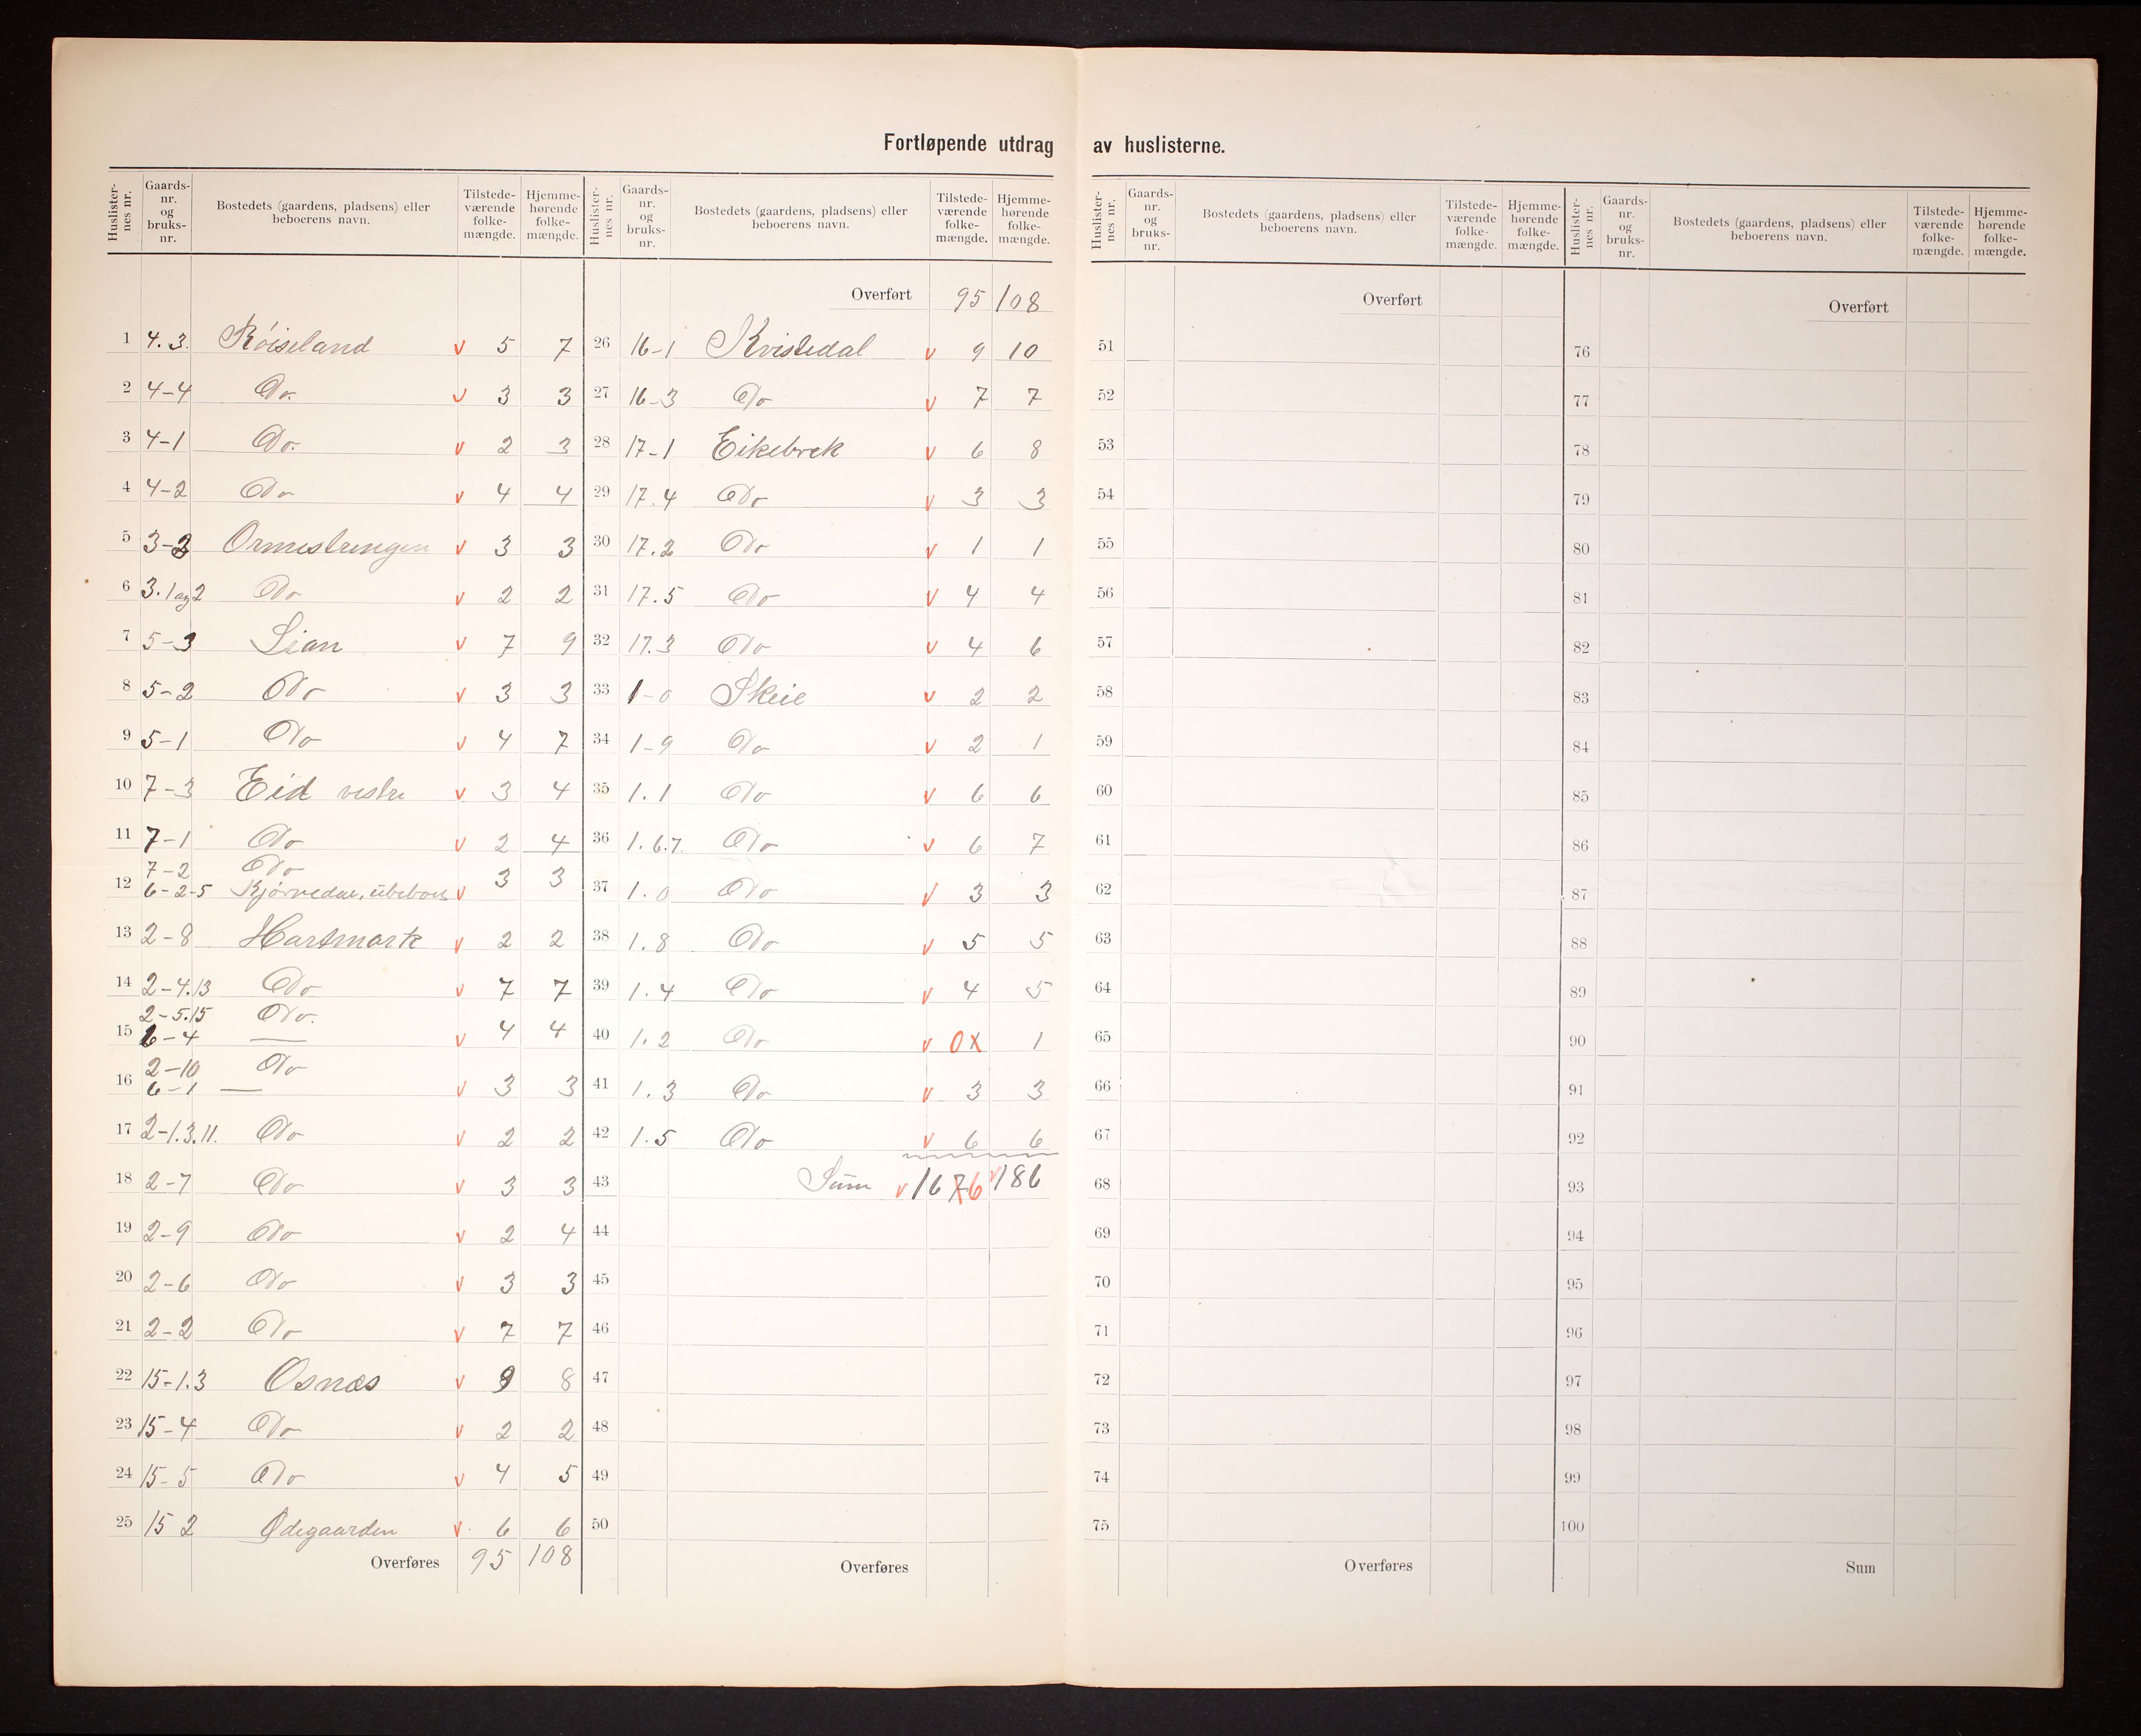 Fortløpende utdrag av huslisterne.
Huslisternes nr. Gaards-nr. og bruks-nr. Bostedets (gaardens, pladsens) eller beboerens navn. Tilstede-værende folke-mængde. Hjemme-hørende folke-mængde.
1 4.3. Røiseland v 5 7
2 4-4 Do. v 3 3
3 4-1 Do. v 2 3
4 4-2 Do v 4 4
5 3-3 Ormestrengen v 3 3
6 3.1 og 2 Do v 2 2
7 5-3 Lian v 7 9
8 5-2 Do v 3 3
9 5-1 Do v 4 7
10 7-3 Eid vestre v 3 4
11 7-1 Do v 2 4
7-2 Do
12 6-2-5 v 3 3
13 2-8 Hartmark v 2 2
14 2-4.13 Do v 7 7
2-5.15 Do.
15 6-4 — v 4 4
2-10 Do
16 6-1 — v 3 3
17 2-1.3.11. Do v 2 2
18 2-7 Do v 3 3
19 2-9 Do v 2 4
20 2-6 Do v 3 3
21 2-2 Do v 7 7
22 15-1.3 Osnæs v 9 8
23 15-4 Do v 2 2
24 15-5 Do v 4 5
25 15 2 Ødegaarden v 6 6
Overføres 95 108
Huslisternes nr. Gaards-nr. og bruks-nr. Bostedets (gaardens, pladsens) eller beboerens navn. Tilstede-værende folke-mængde. Hjemme-hørende folke-mængde.
Overført 95 108
26 16-1 Kvistedal v 9 10
27 16-3 Do v 7 7
28 17-1 Eikebrek v 6 8
29 17.4 Do v 3 3
30 17.2 Do v 1 1
31 17.5 Do v 4 4
32 17.3 Do v 4 6
33 1-0 Skeie v 2 2
34 1-9 Do v 2 1
35 1.1 Do v 6 6
36 1.6.7. Do v 6 7
37 1.0 Do v 3 3
38 1.8 Do v 5 5
39 1.4 Do v 4 5
40 1.2 Do v 0x 1
41 1.3 Do v 3 3
42 1.5 Do v 6 6
43 Sum v 1676 v 186
44
45
46
47
48
49
50
Overføres
Huslisternes nr. Gaards-nr. og bruks-nr. Bostedets (gaardens, pladsens) eller beboerens navn. Tilstede-værende folke-mængde. Hjemme-hørende folke-mængde.
Overført
51
52
53
54
55
56
57
58
59
60
61
62
63
64
65
66
67
68
69
70
71
72
73
74
75
Overføres
Huslisternes nr. Gaards-nr. og bruks-nr. Bostedets (gaardens, pladsens) eller beboerens navn. Tilstede-værende folke-mængde. Hjemme-hørende folke-mængde.
Overført
76
77
78
79
80
81
82
83
84
85
86
87
88
89
90
91
92
93
94
95
96
97
98
99
100
Sum